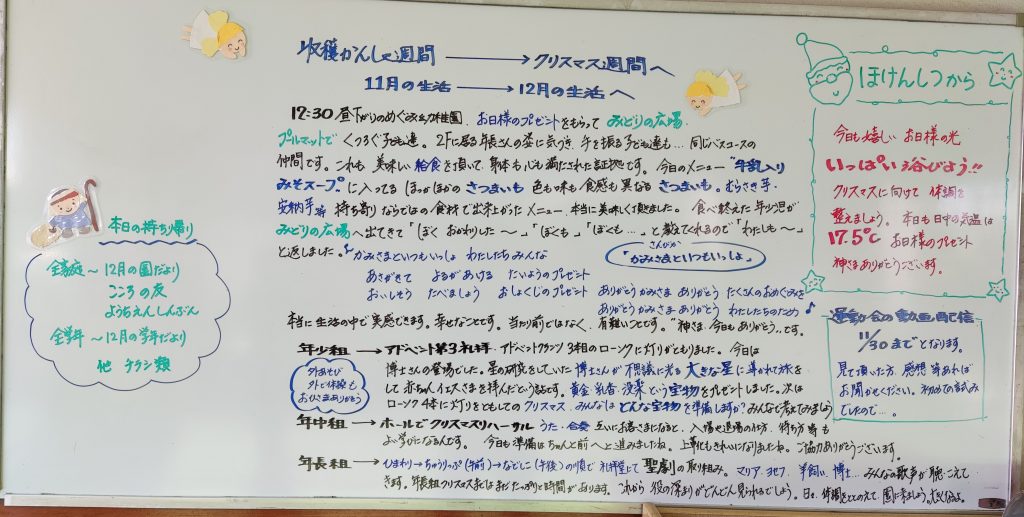 収穫かんしゃ週間 → クリスマス週間へ
11月の生活 → 12月の生活へ
12:30 昼下がりのめぐみ幼稚園。お日様のプレゼントをもらって みどりの広場・
プールマットで くつろぐ子ども達。2Fに居る年長さんの姿に気づき 手を振る子ども達も… 同じバスコースの
仲間です。これも 美味しい給食を頂いて、身体も心も満たされた証拠です。今日のメニュー "牛乳入り
みそスープ" に入ってる ほっかほかの さつまいも 色も味も食感も異なる さつまいも。むらさき芋・
安納芋等 持ち寄りならではの食材で出来上がったメニュー 本当に美味しく頂きました。食べ終えた年少児が
みどりの広場へ出てきて「ぼく おかわりした〜」「ぼくも」「ぼくも…」と教えてくれるので「わたしも〜」
と返しました。
さんびか
「かみさまといつもいっしょ」
♪かみさまといつもいっしょ わたしたちみんな
あさがきて よるがあける たいようのプレゼント
おいしそう たべましょう おしょくじのプレゼント ありがとうかみさま ありがとう たくさんのおめぐみを
ありがとうかみさま ありがとう わたしたちのため♪
本当に生活の中で実感できます。幸せなことです。当り前ではなく、有難いことです。"神さま 今日もありがとう"です。
年少組 → アドベント第3礼拝 アドベントクランツ 3本目のローソクに灯りがともりました。今日は
博士さんの登場でした。星の研究をしていた博士さんが 不思議に光る 大きな星に導かれて旅を
して 赤ちゃんイエスさまを拝んだというお話です。黄金 乳香 没薬という宝物をプレゼントしました。次は
ローソク4本に灯りをともしての クリスマス。みんなは どんな宝物を準備しますか? みんなで考えてみましょう
外あそび
外で体操も
おひさまありがとう
年中組 → ホールでクリスマスリハーサル うた・合奏 互いにお客さまになると、入場や退場の仕方、待ち方等も
よい学びになるんです。今日も準備はちゃんと前へと進みましたね。上靴もきれいになりましたね。ご協力ありがとうございます。
年長組 → ひまわり→ちゅうりっぷ(午前)→なでしこ(午後)の順で 礼拝堂にて 聖劇の取組み。マリア、ヨセフ、羊飼い、博士… みんなの歌声が聴こえて
きます。年長組クリスマス会にはまだたっぷりと時間があります。これから 役の深まりがどんどん見られるでしょう。日々、体調をととのえて 園に来ましょう。
本日の持ち帰り
全家庭〜12月の園だより
こころの友
ようちえんしんぶん
全学年〜12月の学年だより
他 チラシ類
ほけんしつから
今日も嬉しい お日様の光
いっぱい浴びよう!!
クリスマスに向けて 体調を
整えましょう。本日も日中の気温は
17.5℃ お日様のプレゼント
神さまありがとうございます。
運動会の動画配信
11/30まで となります。
見て頂いた方、感想等あれば
お聞かせください。初めての試み
でしたので…。